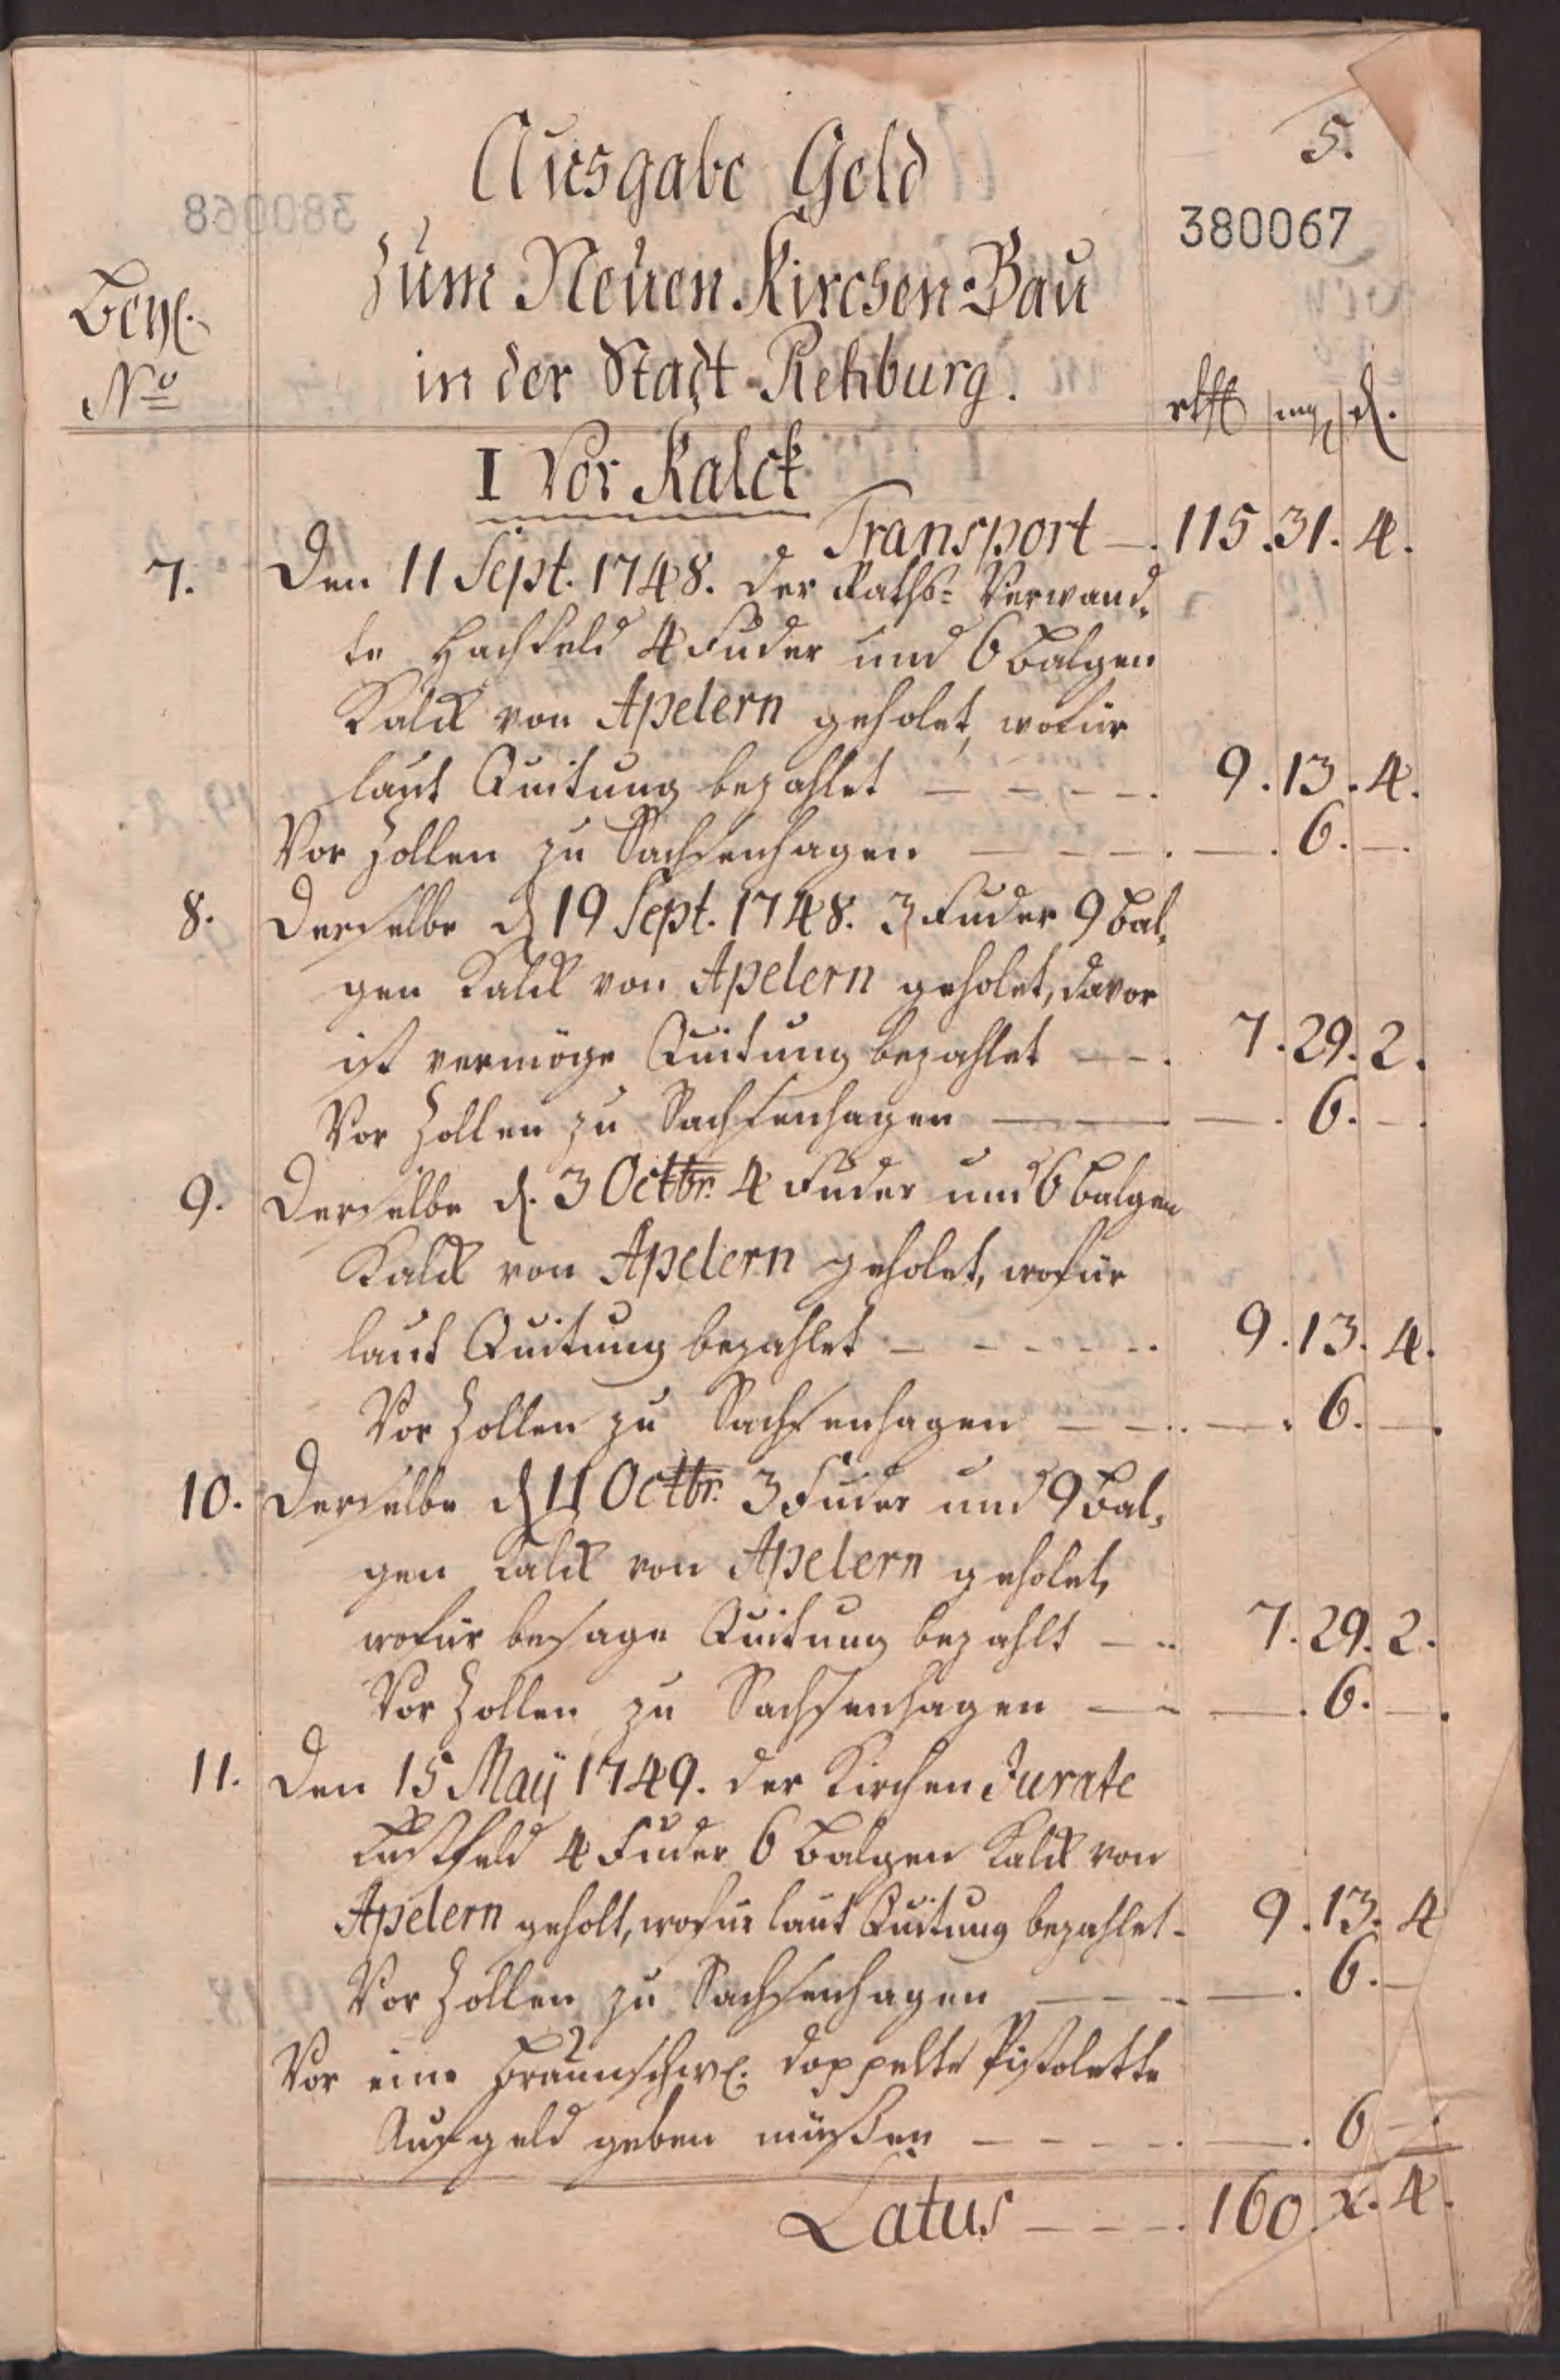 5.
Ausgabe Geld
380067
zum Neuen Kirchen Bau
Beyl.
No
in der Stadt Rehburg.
rthlr mg d.
I Vor Kalck
Transport — 115. 31. 4.
7. Den 11 Sept. 1748. der Raths= Verwand,
te Hachfeld 4 Fuder und 6 Balgen
Kalck von Apelern geholet, wofür
laut Quitung bezahlet — — — — 9. 13. 4.
Vor Zollen zu Sachsenhagen — — — — . 6. —.
8. Derselbe d 19 Sept. 1748. 3 Fuder 9 Bal,
gen Kalck von Apelern geholet, davor
ist vermöge Quitung bezahlet — — 7. 29. 2.
Vor Zollen zu Sachsenhagen — — — . 6. —.
9. Derselbe d. 3 Octbr. 4 Fuder und 6 Balgen
Kalck von Apelern geholet, wofür
laut Quitung bezahlet — — — — 9. 13. 4.
Vor Zollen zu Sachsenhagen — — — . 6. —.
10. Derselbe d 11 Octbr. 3 Fuder und 9 Bal,
gen Kalck von Apelern geholet,
wofür besage Quitung bezahlt — 7. 29. 2.
Vor Zollen zu Sachsenhagen — — — . 6. —.
11. Den 15 Maÿ 1749. der Kirchen Jurate
4 Fuder 6 Balgen Kalck von
Apelern geholt, wofür laut Quitung bezahlet - 9. 13. 4
Vor Zollen zu Sachsenhagen — — — — . 6. —
Vor eine Braunschw. doppelte Pistolette
Aufgeld geben müßen — — — — — . 6 —.
Latus — — — 160. 2. 4.